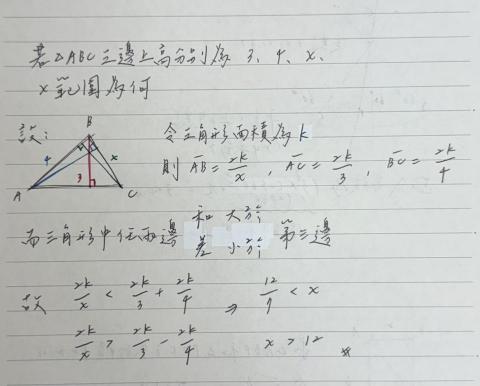 若△ABC三邊上高分別為 3、4、x、
x範圍為何
設: 令三角形面積為k
B
4 x
3
A C
則 AB = 2k/x , AC = 2k/3 , BC = 2k/4
而三角形中任兩邊 和 大於 差 小於 第三邊
故 2k/x < 2k/3 + 2k/4 ⇒ 12/7 < x
2k/x > 2k/3 - 2k/4 x > 12